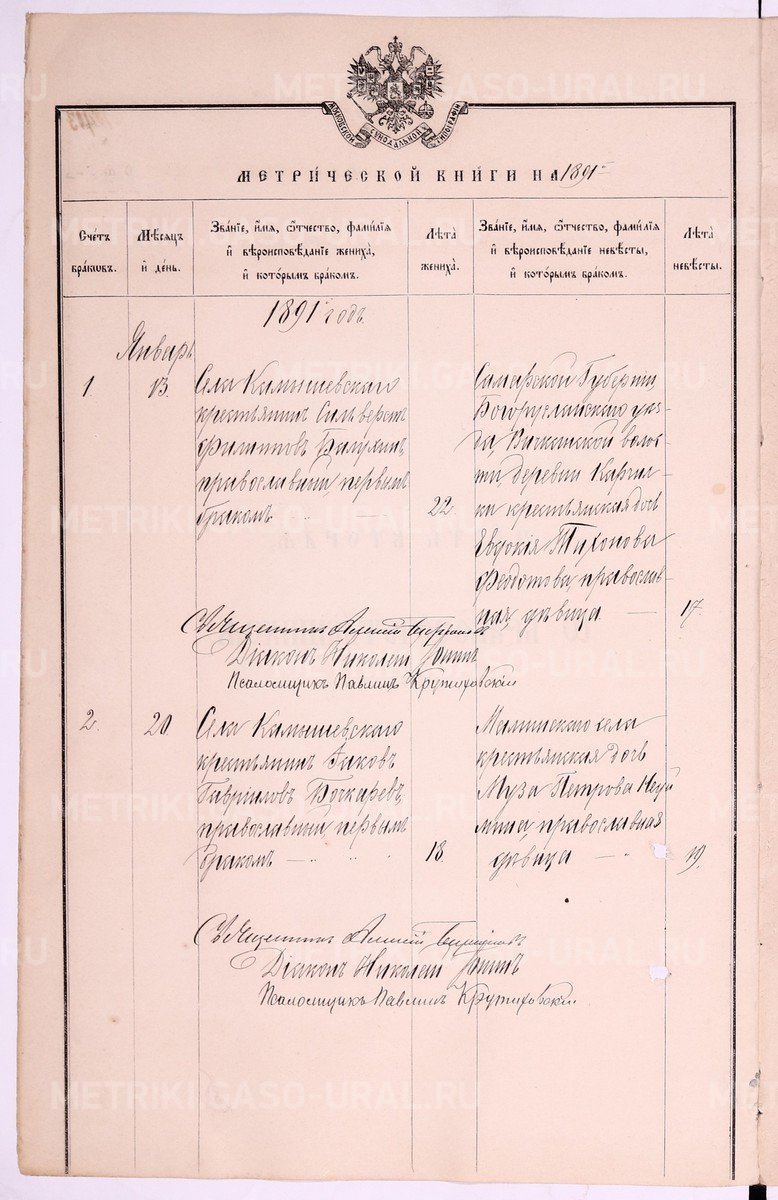 МОСКОВСКОЙ СѴНОДАЛЬНОЙ ТИПОГРАФІИ
МЕТРИ́ЧЕСКОЙ КНИ́ГИ НА 1891
Сче́тъ бра́кωвъ.
Мѣ́сѧцъ и҆ де́нь.
Зва́нїе, и҆́мѧ, ѻ҆́тчество, фамилїѧ
и҆ вѣроисповѣ́данїе жениха̀,
и҆ кото́рымъ бра́комъ.
Лѣта̀ жениха̀.
Зва́нїе, и҆́мѧ, ѻ҆́тчество, фамилїѧ
и҆ вѣроисповѣ́данїе невѣ́сты,
и҆ кото́рымъ бра́комъ.
Лѣта̀ невѣ́сты.
1891 годъ.
Январь
1
13.
Села Камышевскаго
крестьянинъ Сильверстъ
Филипповъ Балухинъ,
православный, первымъ
бракомъ
22.
Самарской Губерніи
Богоруслайскаго уѣз-
да,
волос
ти деревни
ки крестьянская дочь
Евдокія Тихонова
Федотова, православ-
ная, дѣвица —
17.
Священникъ Алексій
Діаконъ Николай
Псаломщикъ Павлинъ Крутиховскій
2.
20.
Села Камышевскаго
крестьянинъ Іаковъ
Гавріиловъ Бочкаревъ,
православный первымъ
бракомъ —
18.
Маминскаго села
крестьянская дочь
Муза Петрова Неуй
мина, православная
дѣвица —
19.
Священникъ Алексій
Діаконъ Николай
Псаломщикъ Павлинъ Крутиховскій.
METRIKI.GASO-URAL.RU